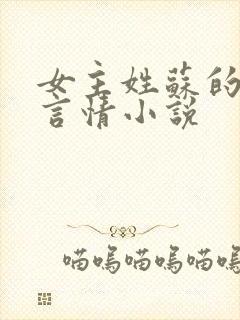 女主姓蘇的
言情小説
喵嗚喵嗚喵嗚